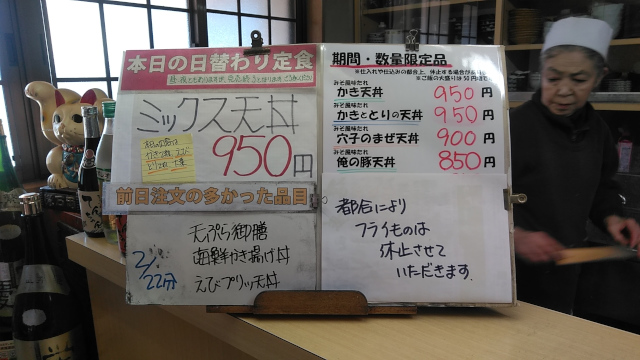 本日の日替わり定食
ミックス天丼
950円
前日注文の多かった品目
2/22分
天ぷら御膳
海鮮かき揚げ丼
えびプリッ天丼
期間・数量限定品
※仕入れや仕込みの都合上、休止する場合が
※ご飯の大盛りは50円
みそ風味だれ
かき天丼 950円
みそ風味だれ
かきととりの天丼 950円
みそ風味だれ
穴子のまぜ天丼 900円
みそ風味だれ
俺の豚天丼 850円
都合により
フライものは
休止させて
いただきます.